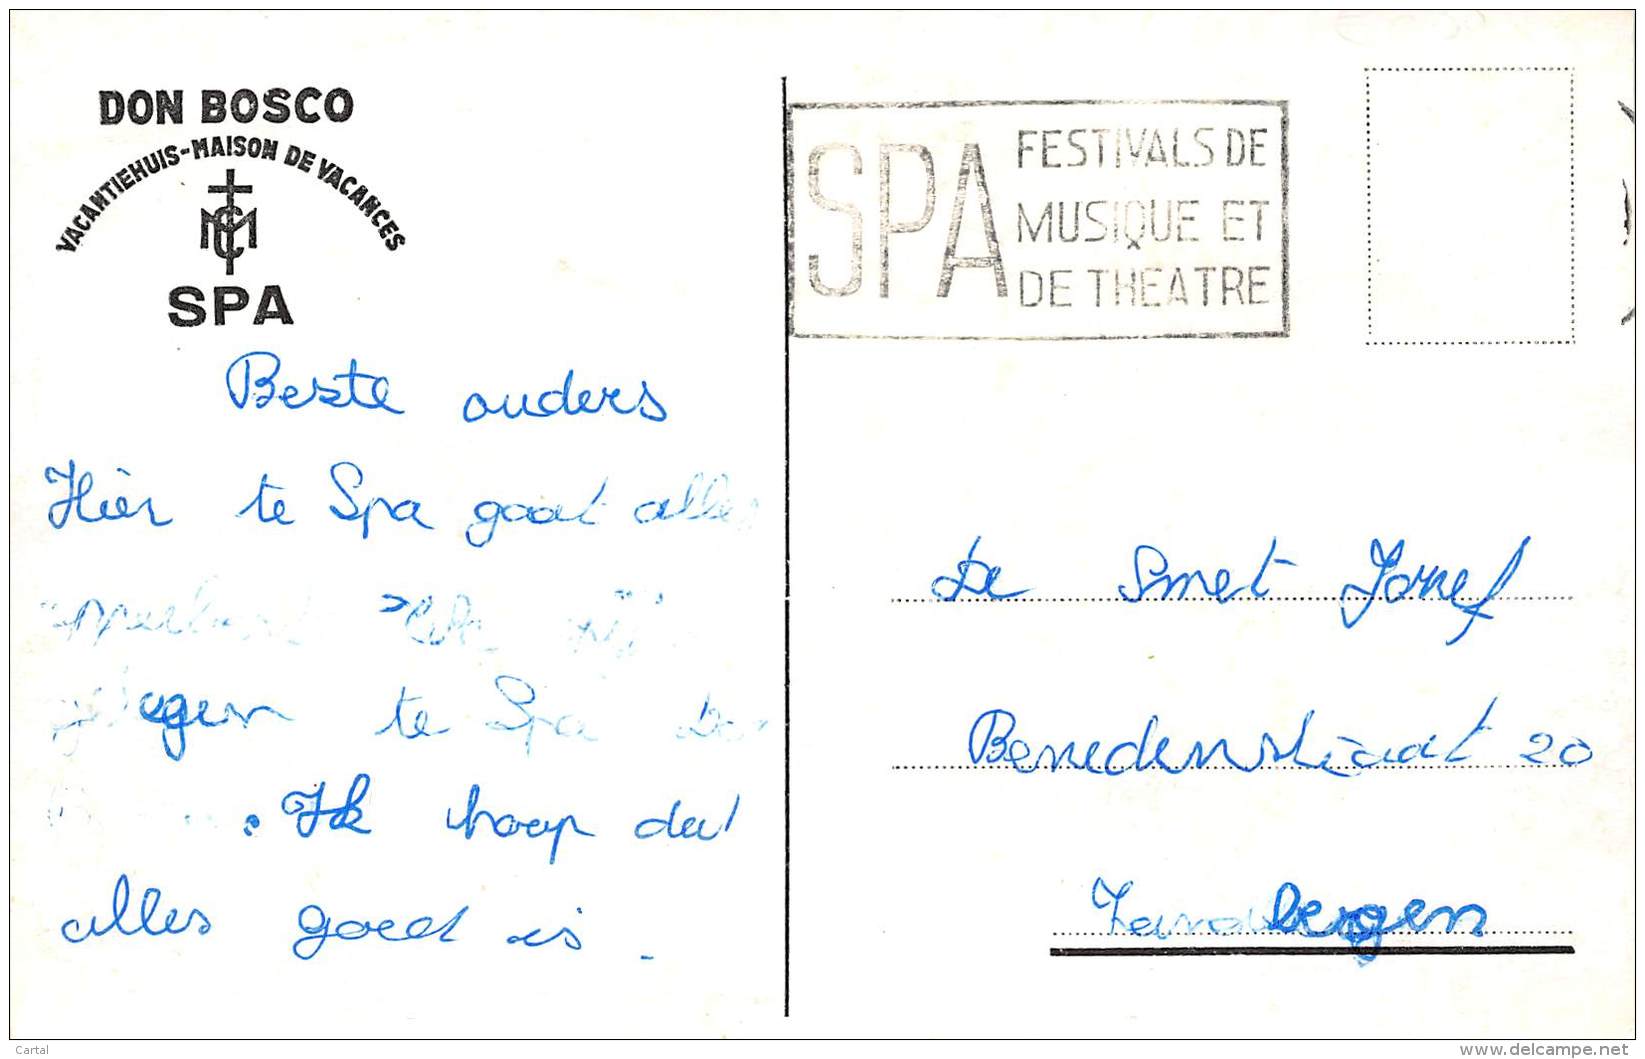 DON BOSCO
VACANTIEHUIS-MAISON DE VACANCES
SPA
SPA
FESTIVALS DE
MUSIQUE ET
DE THEATRE
Beste ouders
Hier te Spa gaat alles
te Spa
Ik hoop dat
alles goed is.
De Smet Jozef
Benedenstraat 20
Zandbergen
Cartal
www.delcampe.net